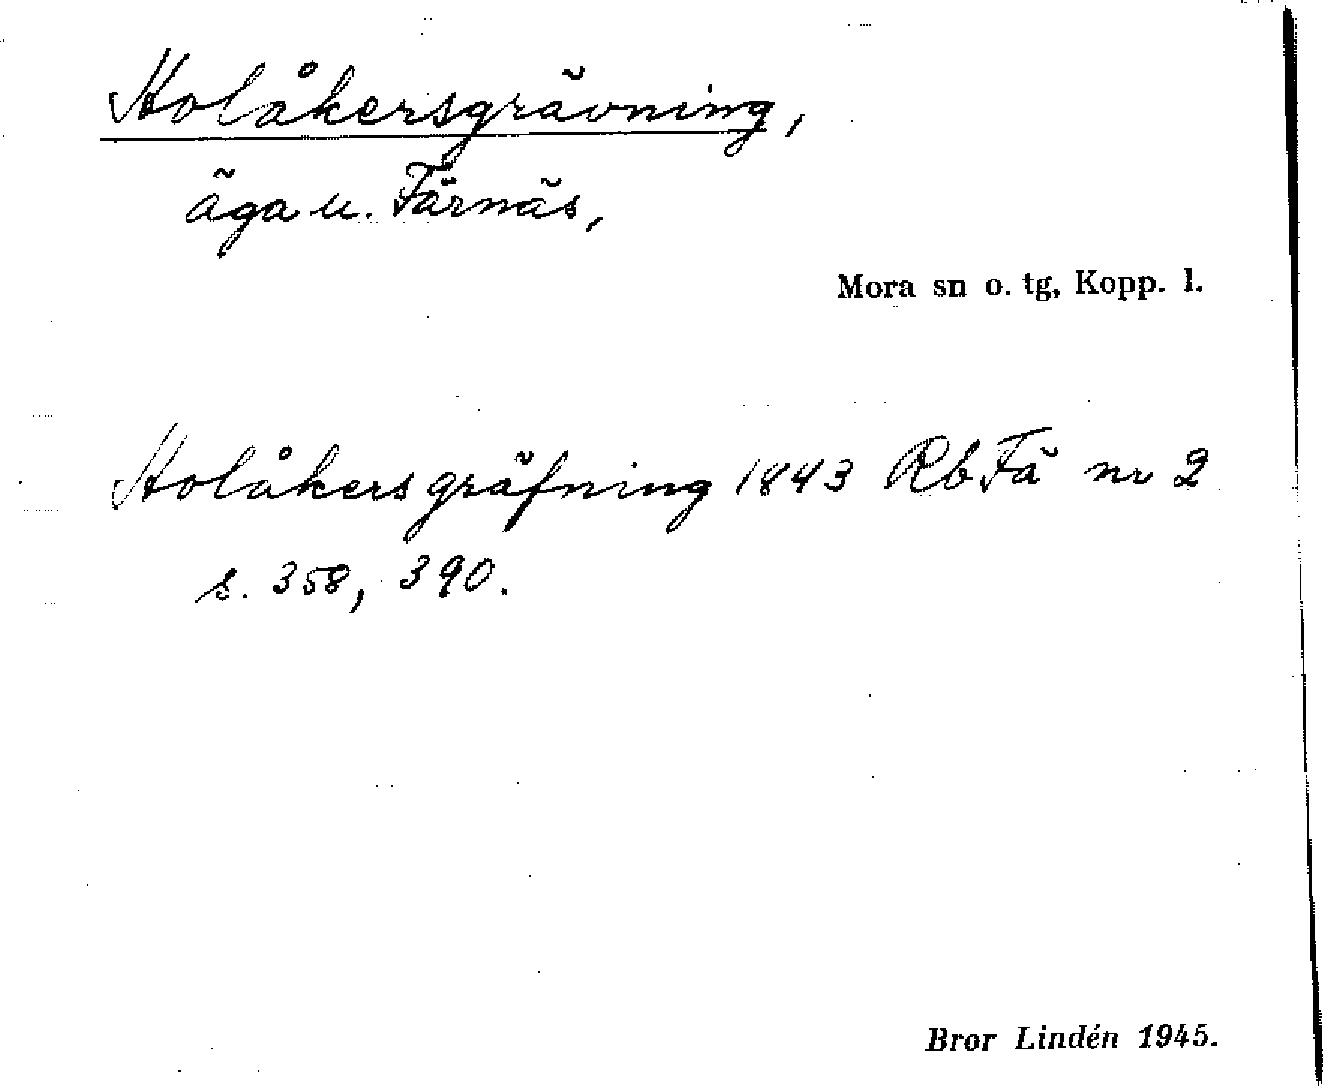 Holåkersgrävning,
äga u. Färnäs,
Mora sn o. tg, Kopp. l.
Holåkersgräfning 1843 Rb Fä nr 2
s. 358, 390.
Bror Lindén 1945.